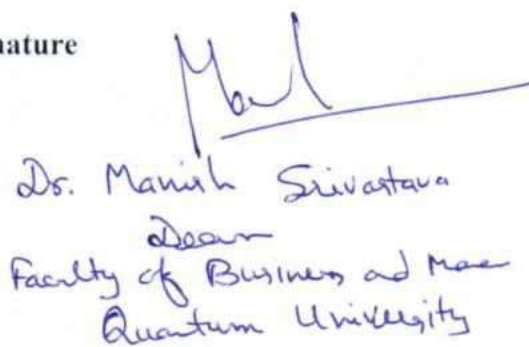 nature
Dr. Manish Srivastava
Dean
Faculty of Business and
Quantum University